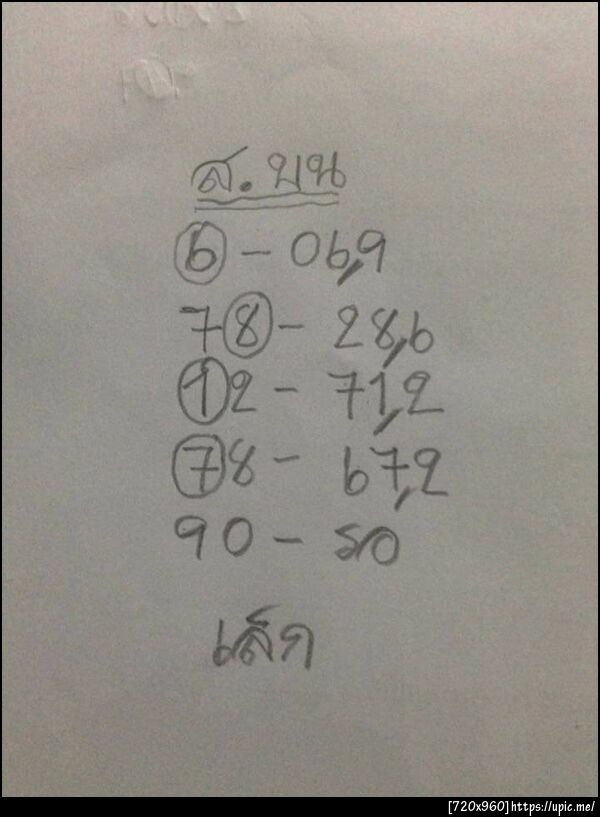 ส. บน
6 - 06,9
78 - 28,6
12 - 71,2
78 - 67,2
90 - รอ
เล็ก
[720x960]https://upic.me/